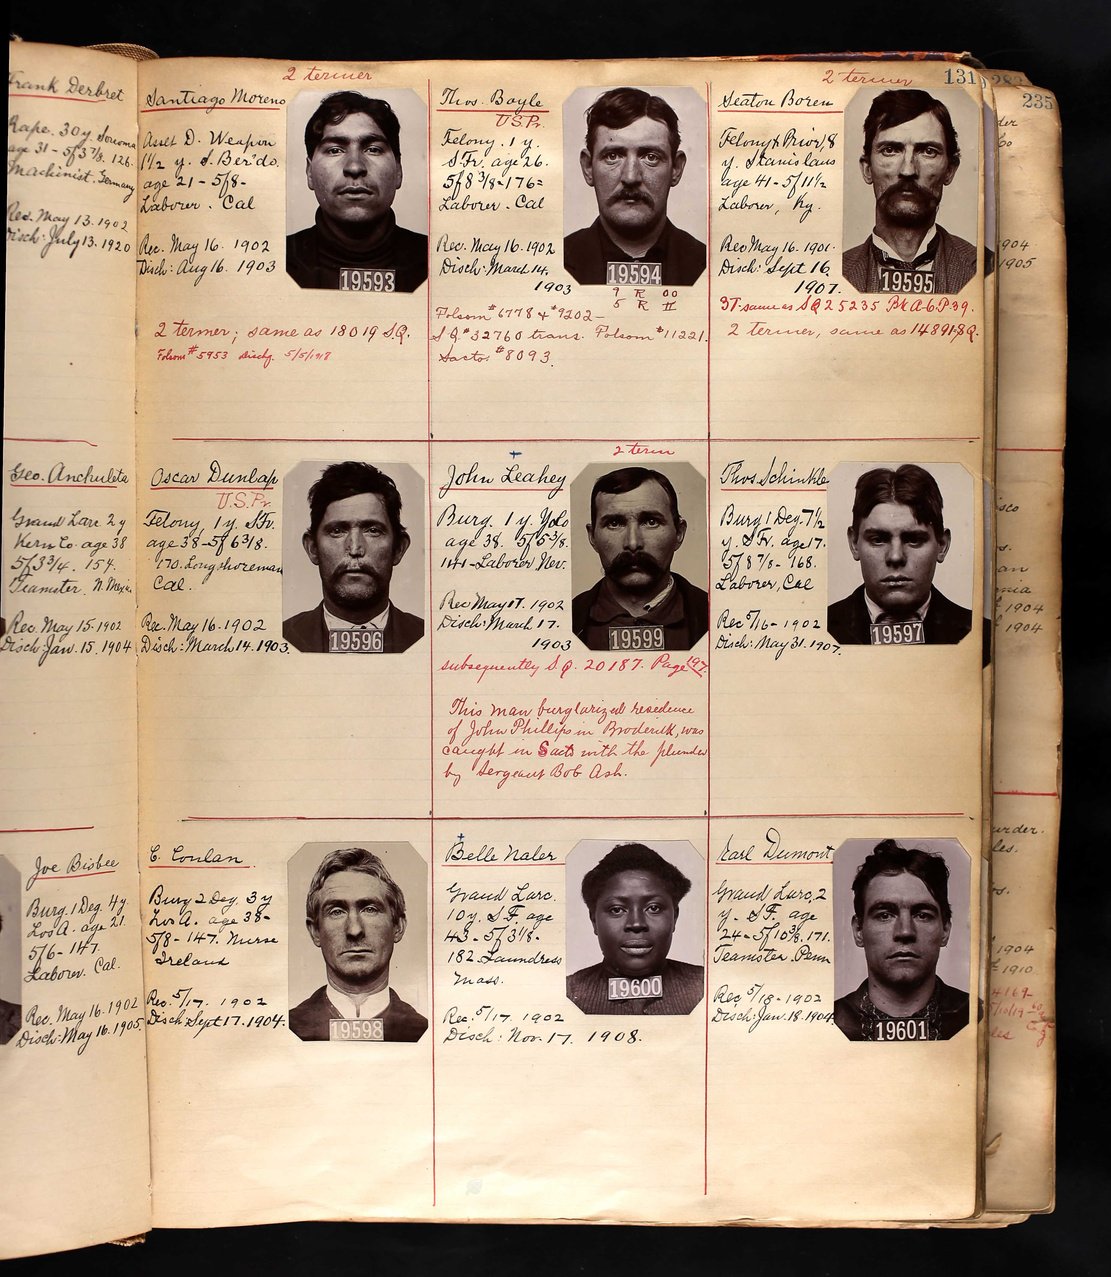 Frank Derbret
Rape. 30 y. Sonoma
age 31 - 5f 3 7/8. 126.
Machinist. Germany
Rec. May 13. 1902
Disch: July 13. 1920
Geo. Anchuleta
Grand Larc 2 y
Kern Co. age 38
5f 3 3/4. 154.
Teamster. N. Mexico
Rec. May 15. 1902
Disch: Jan. 15. 1904
Joe Bisbee
Burg. 1 Deg. 4 y.
Los A. age 21.
5/6 - 147.
Laborer. Cal.
Rec. May 16. 1902
Disch: May 16. 1905
2 termer
Santiago Moreno
Asslt D. Weapon
1 1/2 y. S. Ber'do.
age 21 - 5/8 -
Laborer. Cal
Rec. May 16. 1902
Disch: Aug 16. 1903
19593
2 termer; same as 18019 S.Q.
Folsom # 5953 Dischg. 5/5/1918
Thos. Boyle
U.S.Pr.
Felony. 1 y.
S. Fr. age 26.
5f 8 3/8 - 176 =
Laborer. Cal
Rec. May 16. 1902
Disch: March 14.
1903
19594
9 R 00
5 R II
Folsom # 6778 & # 9202 -
S.Q. # 32760 trans. Folsom # 11221.
Sacto. # 8093.
2 termer
131
Seaton Boren
Felony & Prior, 8
y. Stanislaus
age 41 - 5f 11 1/2
Laborer, Ky.
Rec May 16. 1901.
Disch: Sept 16.
1907.
19595
3T. same as S.Q 25235 Bk A-6-P-39.
2 termer, same as 14891 S.Q.
Oscar Dunlap
U.S.Pr.
Felony, 1 y. S. Fr.
age 38 - 5f 6 3/8.
170. Longshoreman
Cal.
Rec. May 16. 1902
Disch: March 14. 1903.
19596
2 term
John Leahey
Burg. 1 y. Yolo
age 38. 5f 5 3/8.
141 - Laborer Nev.
Rec May 17. 1902
Disch: March 17.
1903
19599
subsequently S.Q. 20187. Page 197.
This man burglarized residence
of John Phillips in Broderick, was
caught in Sacto with the plunder
by Sergeant Bob Ash.
Thos. Schinkle
Burg 1 Deg. 7 1/2
y. S. Fr. age 17.
5f 8 7/8 - 168.
Laborer, Cal
Rec 5/16 - 1902
Disch: May 31. 1907.
19597
C. Conlan
Burg 2 Deg. 3 y
Los A. age 38 -
5/8 - 147. Nurse
Ireland
Rec. 5/17. 1902
Disch: Sept 17. 1904.
19598
Belle Naler
Grand Larc.
10 y. S. F. age
43 - 5f 3 1/8 -
182. Laundress
Mass.
Rec. 5/17. 1902
Disch: Nov. 17. 1908.
19600
Karl Dumont
Grand Larc, 2
y - S. F. age
24 - 5f 10 3/8. 171.
Teamster. Penn
Rec, 5/18 - 1902
Disch: Jan. 18. 1904.
19601
283
235
904
1905
isco
an
1904
1904
urder.
les.
1904
1910.